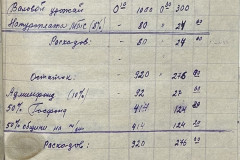 Валовой урожай 0 30 1000 0 30 300
Натуроплата МТС (8%) - 80 24 00
Расходов: - 80 24 00
Остаток: 920 - 276 00
Админфонд (10%) 92 27 00
50% Госфонд 414 124
50% общин на 414 124
Расходов: 920 276 00